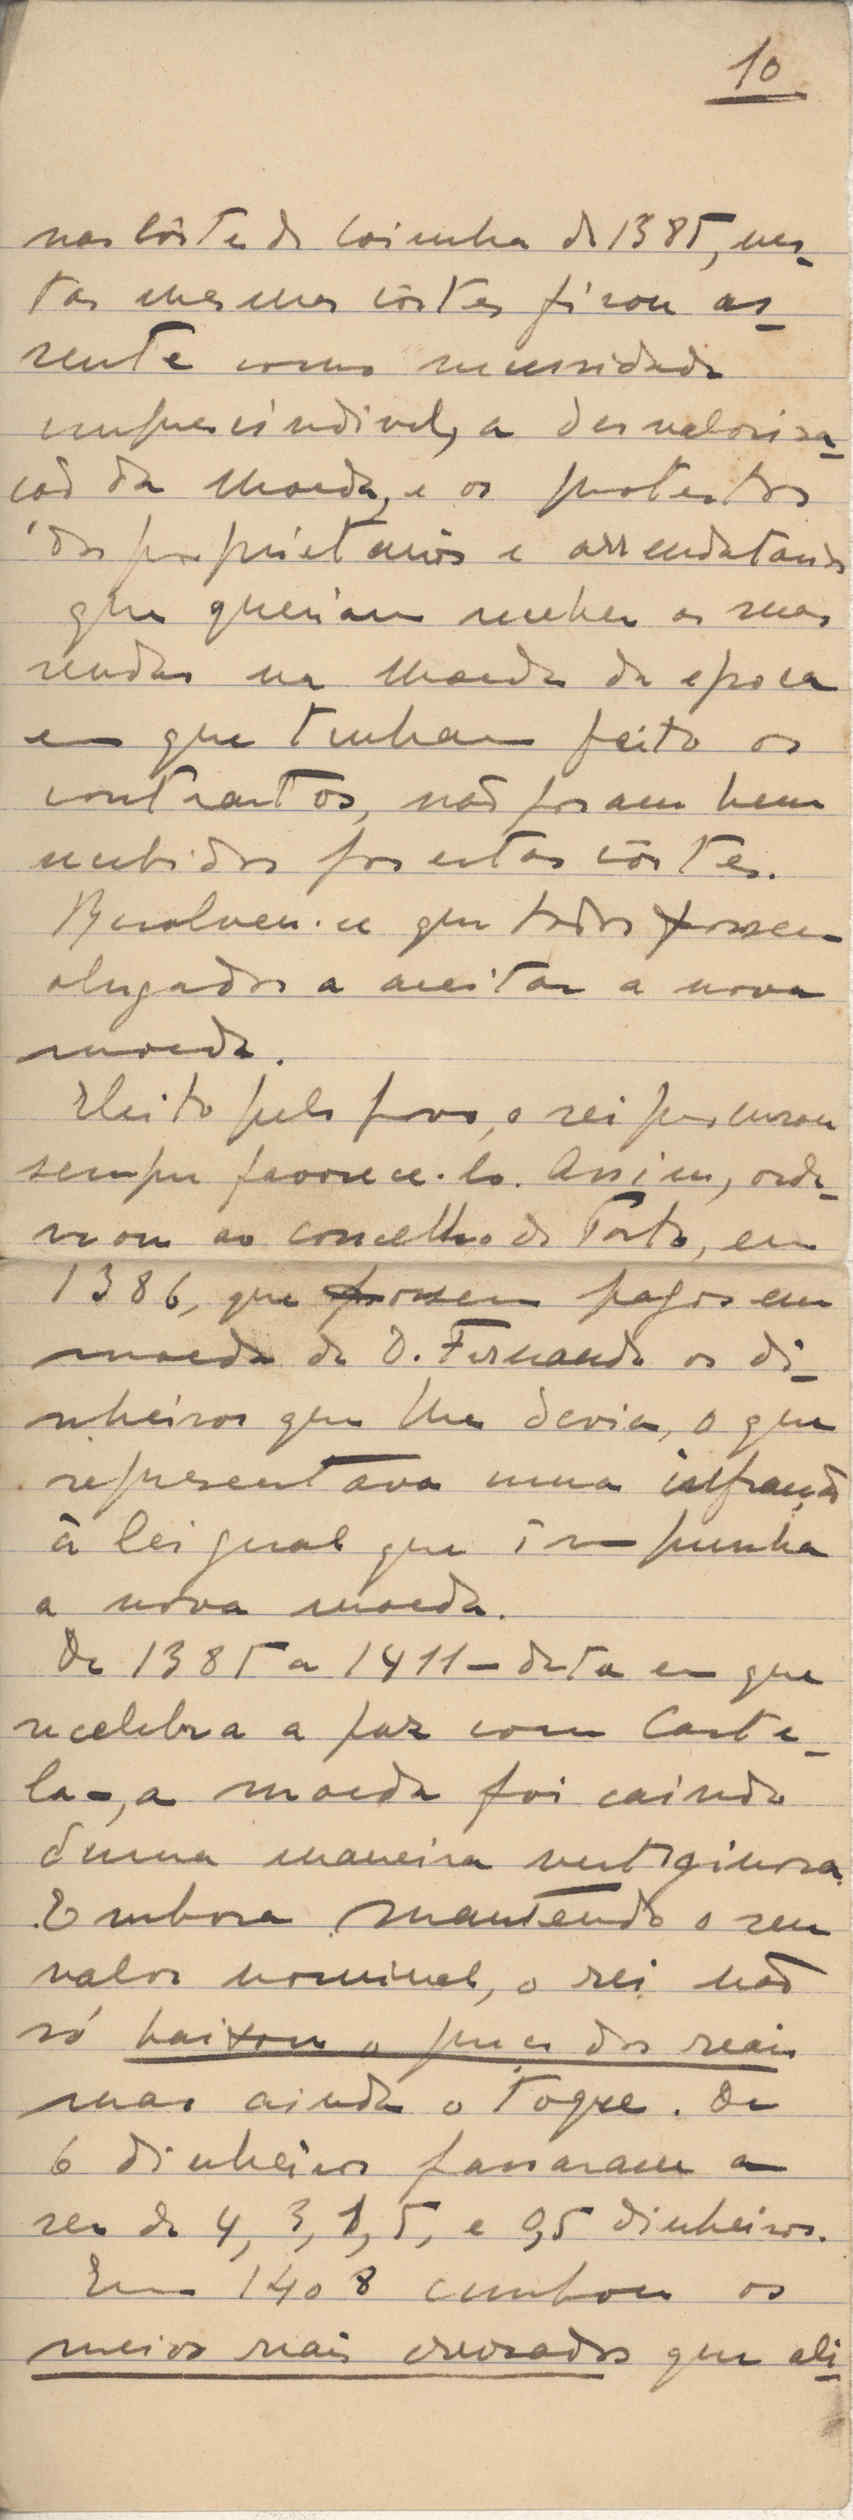 10
nas côrte de Coimbra de 1385, nes-
tas mesmas côrtes ficou as-
sente como necessidade
imprescindivel, a desvalorisa-
ção da moeda, e os protestos
dos proprietarios e arrendatarios
que queriam receber as suas
rendas na moeda da epoca
em que tinham feito os
contractos, não foram bem
recebidos por estas côrtes.
Resolveu-se que todos fossem
obrigados a aceitar a nova
moeda.
Eleito pelo povo, o rei procurou
sempre favorece-lo. Assim, orde-
nou ao concelho do Porto, em
1386, que fossem pagos em
moeda de D. Fernando os di-
nheiros que lhe devia, o que
representava uma infração
á lei geral que impunha
a nova moeda.
De 1385 a 1411 - data em que
se celebra a paz com Caste-
la -, a moeda foi caindo
duma maneira vertiginosa.
Embora mantendo o seu
valor nominal, o rei não
só baixou o peso dos reais
mas ainda o toque. De
6 dinheiros passaram a
ser de 4, 3, 1,5, e 0,5 dinheiros.
Em 1408 cunhou os
meios reais cruzados que ali-